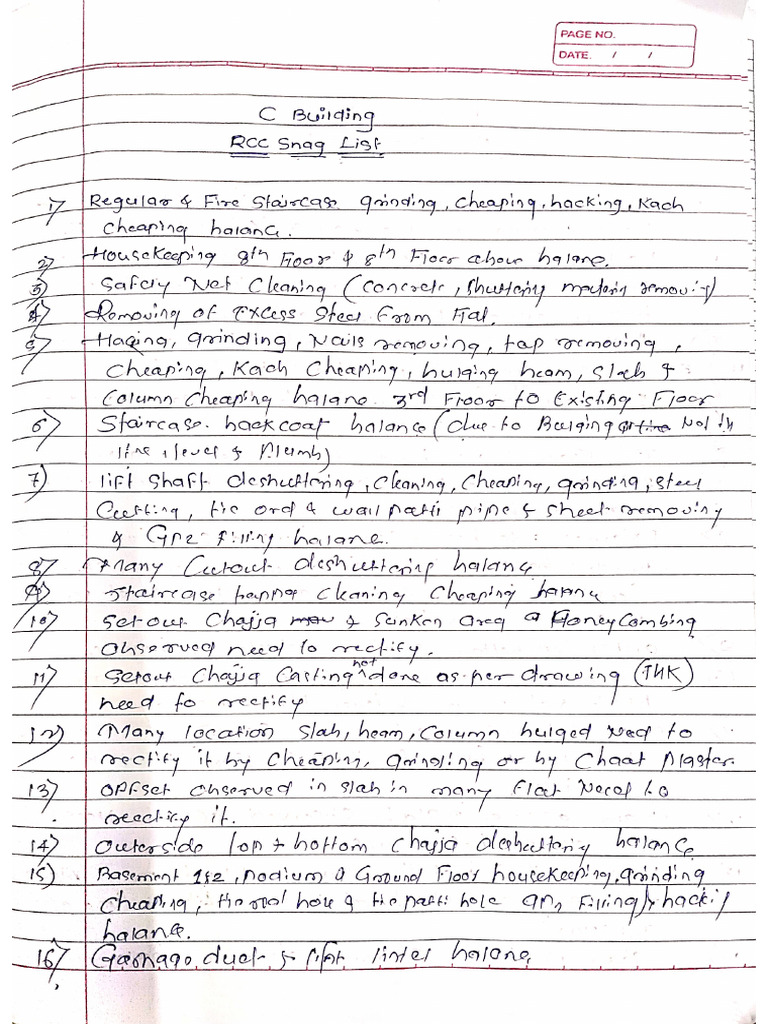 PAGE NO.
DATE. / /
C Building
RCC Snag List
1) Regular & Fire Staircase grinding, cheaping, hacking, Kach
cheaping balance.
2) Housekeeping 8th Floor & 8th Floor above balance.
3) Safety Net Cleaning (concrete, shuttering removing)
4) Removing of Excess Steel From Flat.
5) Hacking, grinding, Nails removing, tap removing,
cheaping, Kach cheaping, bulging beam, slab &
Column cheaping balance 3rd Floor to Existing Floor
6) Staircase backcoat balance (due to Bulging Not in
line & level & Plumb)
7) lift shaft deshuttering, cleaning, cheaping, grinding, steel
Cutting, tie rod & wall patti pipe & sheet removing
& filling balance.
8) Many Cutout deshuttering balance
9) Staircase Cleaning Cheaping balance
10) Setout Chajja & Sunken area Honey Combing
observed need to rectify.
11) Setout Chajja Casting not done as per drawing (THK)
need to rectify
12) Many location slab, beam, column bulged need to
rectify it by cheaping, grinding or by Chaat Plaster.
13) OFFset observed in slab in many flat Need to
rectify it.
14) outerside top & bottom chajja deshuttering balance
15) Basement 1&2, podium & Ground Floor housekeeping, grinding
cheaping, tie rod hole & tie patti hole Filling hacking
balance.
16) duct & lift lintel balance